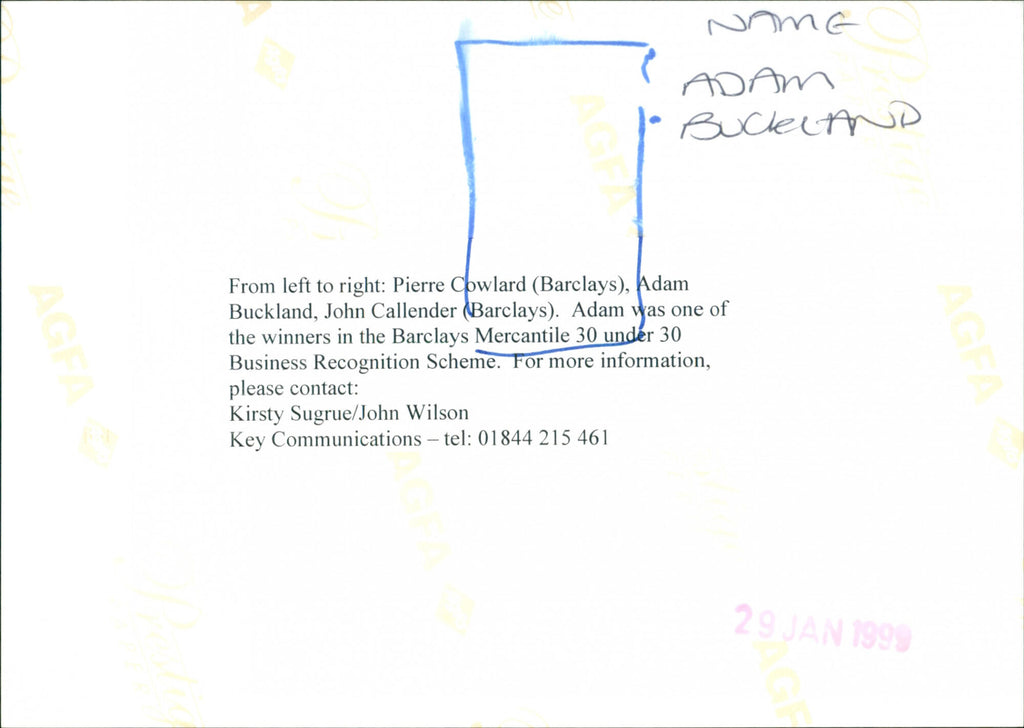 NAME
ADAM
BUCKLAND
From left to right: Pierre Cowlard (Barclays), Adam
Buckland, John Callender (Barclays). Adam was one of
the winners in the Barclays Mercantile 30 under 30
Business Recognition Scheme. For more information,
please contact:
Kirsty Sugrue/John Wilson
Key Communications – tel: 01844 215 461
29 JAN 1999
AGFA
AGFA
AGFA
AGFA
AGFA